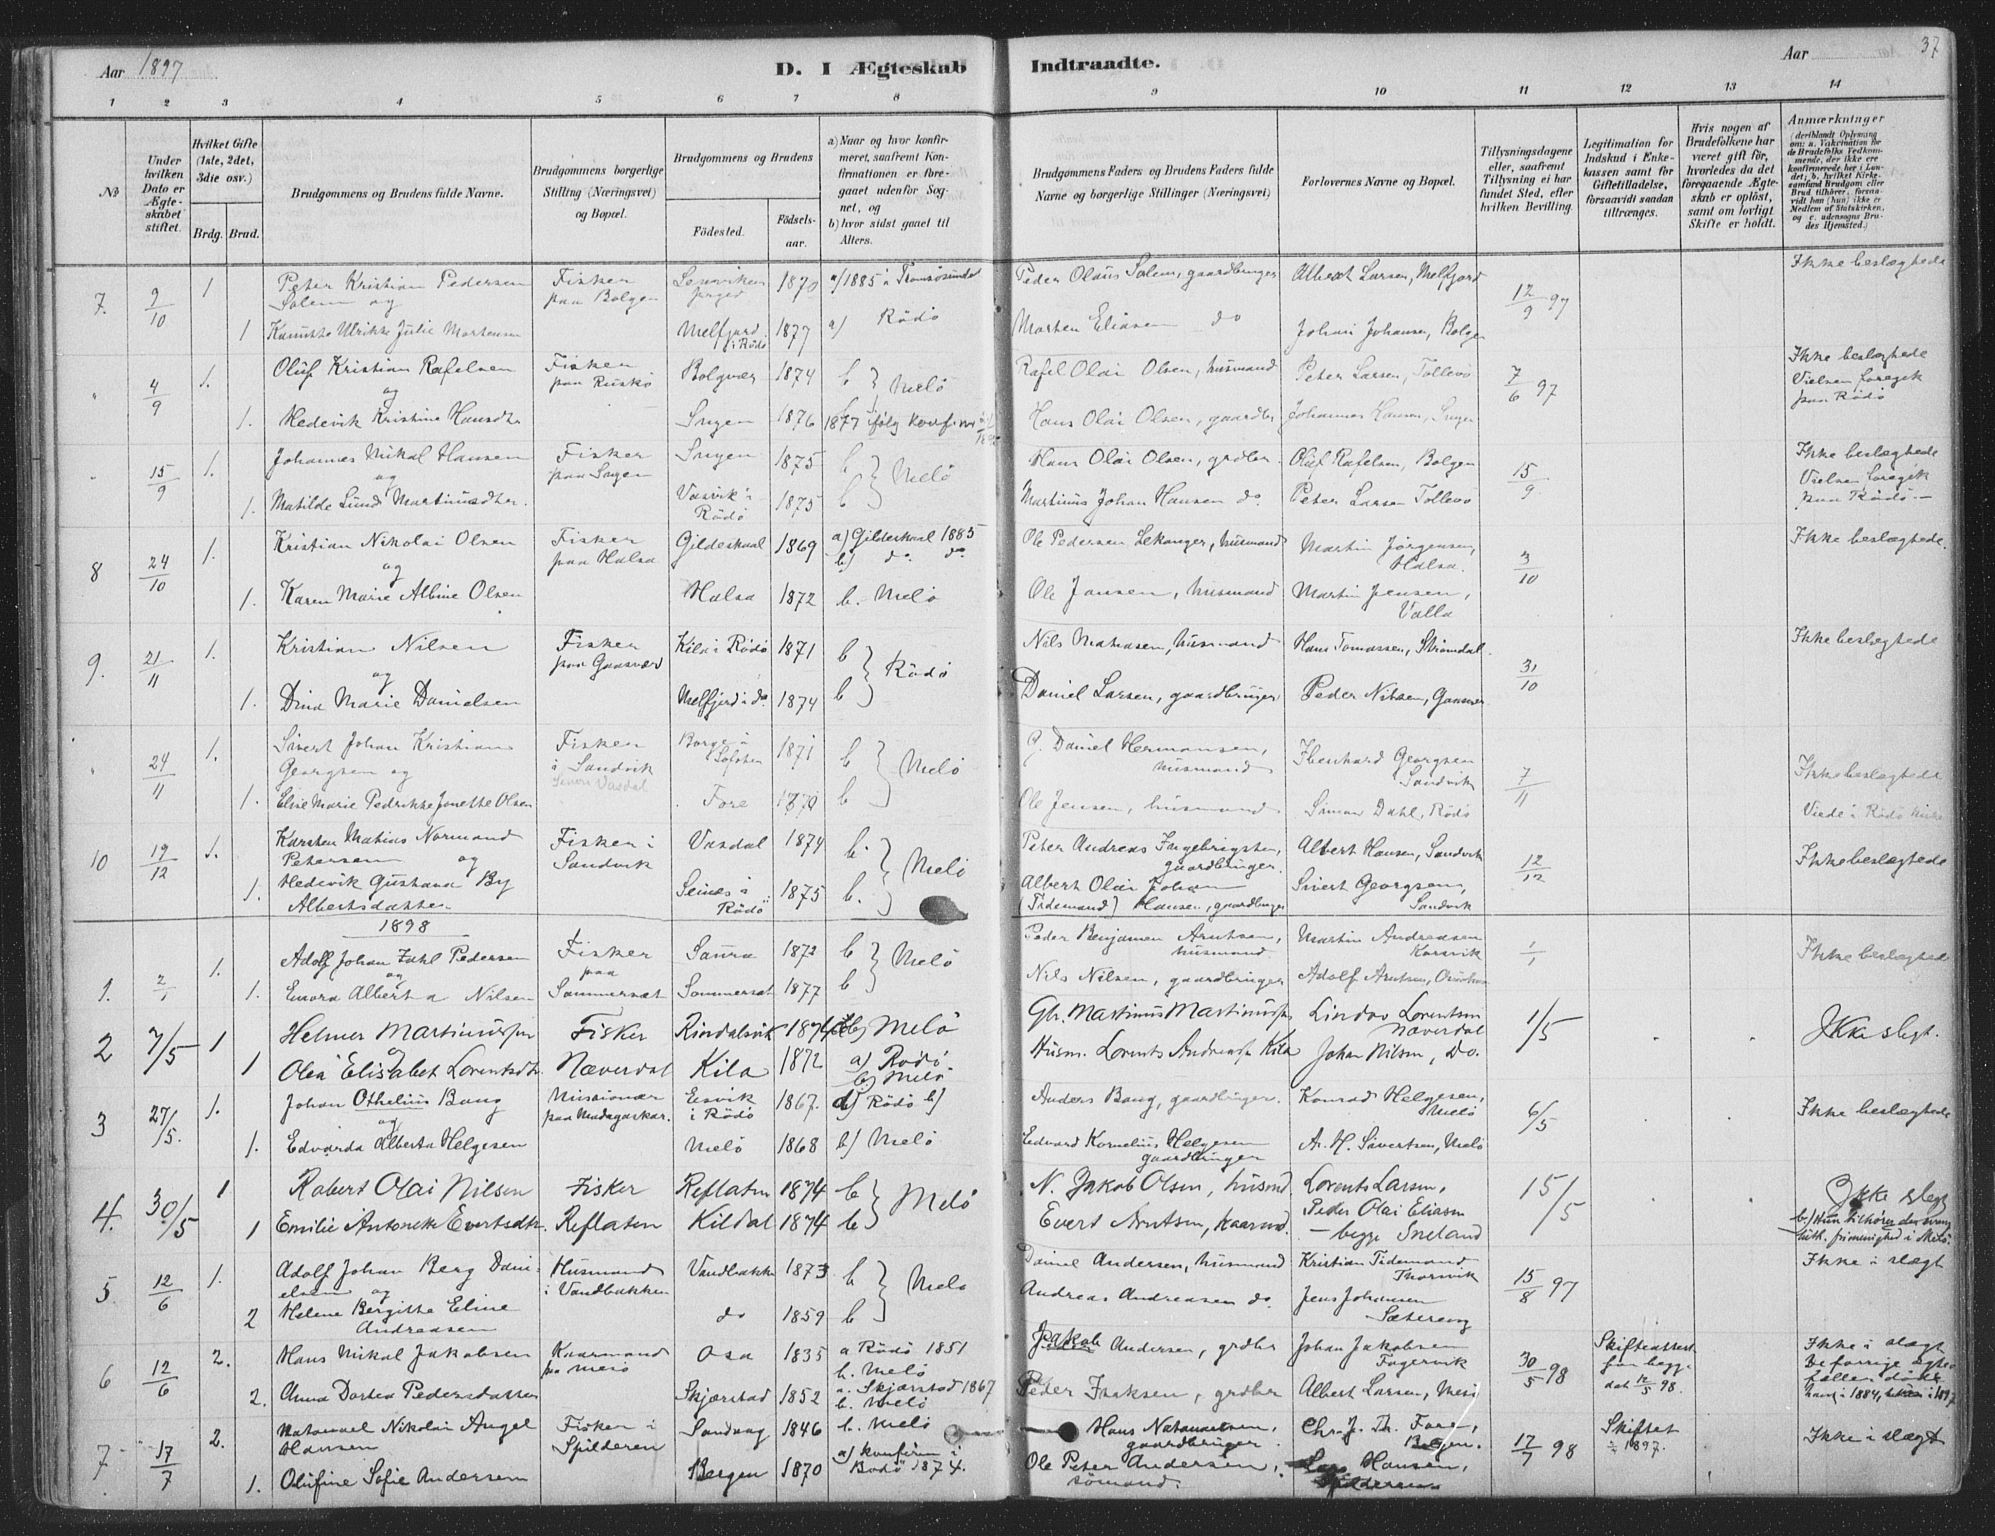 Aar 1897
D. I Ægteskab
Indtraadte.
Aar
37
1 2 3 4 5 6 7 8 9 10 11 12 13 14
№
Under hvilken Dato er Ægteskabet stiftet.
Hvilket Gifte (1ste, 2det, 3die osv.)
Brdg. Brud.
Brudgommens og Brudens fulde Navne.
Brudgommens borgerlige Stilling (Næringsvei) og Bopæl.
Brudgommens og Brudens
Födested.
Födselsaar.
a) Naar og hvor konfirmeret, saafremt Konfirmationen er foregaaet udenfor Sognet, og
b) hvor sidst gaaet til Alters.
Brudgommens Faders og Brudens Faders fulde Navne og borgerlige Stillinger (Næringsvei)
Forlovernes Navne og Bopæl.
Tillysningsdagene eller, saafremt Tillysning ei har fundet Sted, efter hvilken Bevilling.
Legitimation for Indskud i Enkekassen samt for Giftetilladelse, forsaavidt saadan tiltrænges.
Hvis nogen af Brudefolkene har været gift för, hvorledes da det foregaaende Ægteskab er oplöst, samt om lovligt Skifte er holdt.
Anmærkninger
(deriblandt Oplysning om: a. Vakcination for de Brudefolks Vedkommende, der ikke ere konfirmerede her i Landet; b. hvilket Kirkesamfund Brudgom eller Brud tilhörer, forsaavidt han (hun) ikke er Medlem af Statskirken, og c. udensogns Brudes Hjemsted.)
7. 9/10 1 Peter Kristian Pedersen Solem og Fisker paa Bolgen 1870 a/1885 i Tromsösundet Peder Olaus Solem, gaardbruger Albert Larsen, Melfjord 12/9 97 Ikke beslegtede
1 Ulrikke Julie Mortensen Melfjord i Rödö 1877 a) Rödö Morten Eliasen do Johan Johansen, Bolgen
" 4/9 1. Oluf Kristian Rafelsen og Fisker paa Ruskö Bolgvær 1874 b } Melö Rafel Olai Olsen, husmand Peter Larsen, Tollevö 7/6 97 Ikke beslægtede Vielsen foregik paa Rödö
1. Hedevik Kristine Hansdtr Sngen 1876 b 1877 ifølg konf. Hans Olai Olsen, gaardbr Johannes Hansen, Sngen
" 15/9 1. Johannes Mikal Hansen og Fisker paa Sngen Sngen 1875 b } Melö Hans Olai Olsen, grdbr. Oluf Rafelsen, Bolgen 15/9 Ikke beslegtede Vielsen foregik paa Rödö.
1. Matilde Lund Martinusdtr. Vasvik i Rödö 1875 b Martinus Johan Hansen do. Peter Larsen Tollevö
8 24/10 1. Kristian Nikolai Olsen og Fisker paa Halsa Gildeskaal 1869 a) Gildeskaal 1885 b) do. do. Ole Pedersen Lekanger, husmand Martin Jørgensen, Halsa. 3/10 Ikke beslegtede.
1. Karen Marie Albine Olsen Halsa 1872 b. Melö Ole Jansen, husmand Martin Jensen, Valla
9. 21/11 1. Kristian Nilsen og Fisker paa Gaasvær Kila i Rödö 1871 b } Rödö Nils Matiasen, husmand Hans Tomassen, Strömdal. 31/10 Ikke beslegtede
1. Dina Marie Danielsen Melfjord i do. 1874 b Daniel Larsen, gaardbruger Peder Nilsen, Gaasvær
" 24/11 1. Sivert Johan Kristian Georgsen og Fisker i Sandvik Borge i Lofoten 1871 b } Melö G. Daniel Hermansen, husmand Ebenhard Georgsen Sandvik 7/11 Ikke beslegtede
1. Elise Marie Pedrikke Jonette Olsen Fore 1870 b Ole Jensen, husmand Simon Dahl, Rödö Viede i Rödö kirke
10 19/12 1. Karsten Matias Normand Petersen og Fisker i Sandvik Vasdal 1874 b. } Melö Peter Andreas Ingebrigtsen, gaardbruger. Albert Hansen, Sandvik 12/12 Ikke beslegtede
1. Hedevik Gustava By Albertsdatter Seines i Rödö 1875 b. Albert Olai Johan (Tidemand) Hansen, gaardbruger Sivert Georgsen, Sandvik
1898
1. 2/1 1. Adolf Johan Zahl Pedersen og Fisker paa Sommerset Saura 1872 b } Melö Peder Benjamin Arntsen, husmand Martin Andreasen Korsvik 1/1 Ikke beslegtede
1. Albert a Nilsen Sommerset 1877 b Nils Nilsen, gaardbruger Adolf Arntsen,
2 7/5 1 Helmer Martinussen og Fisker Næverdal Rindalsvik 1874 b) Melö Gbr. Martinus Martinussen Lindor Lorentsen Næverdal 1/5 Ikke slegt.
1 Olea Elisabet Lorentsdtr. Kila 1872 a) Rödö. b) Melö Husm. Lorents Andreassen Kila Johan Nilsen, Do.
3 27/5. 1. Johan Othelius Bang og Missionær paa Madagaskar. Esvik i Rödö 1867. a) Rödö b) Anders Bang, gaardbruger. Konrad Helgesen, Melö 6/5 Ikke beslegtede
1. Edvarda Alberta Helgesen Melö 1868 b) Melö Edvard Kornelius Helgesen gaardbruger A. H. Sivertsen, Melö
4. 30/5 1 Robert Olai Nilsen Fisker Reflaten Reflaten 1874 b } Melö N. Jakob Olsen, husmd. Lorents Larsen, 15/5 Ikke slegt
1 Emilie Antonette Evertsdtr. Kildal 1874 b Evert Arntsen, kaarmd. Peder Olai Eliasen — begge Sneland b.) Hun tilhører den evang. luth. frimenighed i Melö.
5. 12/6 1. Adolf Johan Berg Danielsen og Husmand i Vandbakken Vandbakken 1873 b } Melö Daniel Andersen, husmand Kristian Tidemand Thorsvik 15/8 97 Ikke i slægt
2 Helene Bergitte Eline Andreasen do 1859 b Andreas Andreasen do. Jens Johansen Sætervog
6 12/6 2. Hans Mikal Jakobsen Kaarmand pa Mesö Osa 1835 a Rödö 1851 b. Melö Jakob Andersen, grdbr Johan Jakobsen Fagervik 30/5 98 Skifteattest for begge dat 12/5 98. Ikke i slægt De forrige ægtefæller døde han i 1884, i 1897
2. Anna Dortea Pedersdatter Skjærstad 1852 a. Skjærstad 1867 b. Melö Peder Isaksen, grdbr Albert Larsen, Mesö
7 17/7 2. Natanael Nikolai Angel Hansen Fisker i Spilderen Sandvag 1846 b. Melö Hans Natanaelsen, gaardbruger. Chr. J. Dr. Fore, 17/7 98 Skiftet 1897. Ikke i slægt
1. Olufine Sofie Andersen Bergen 1870 a) konfirm i Bodö 1874. Ole Peter Andersen, sömand. Hansen,